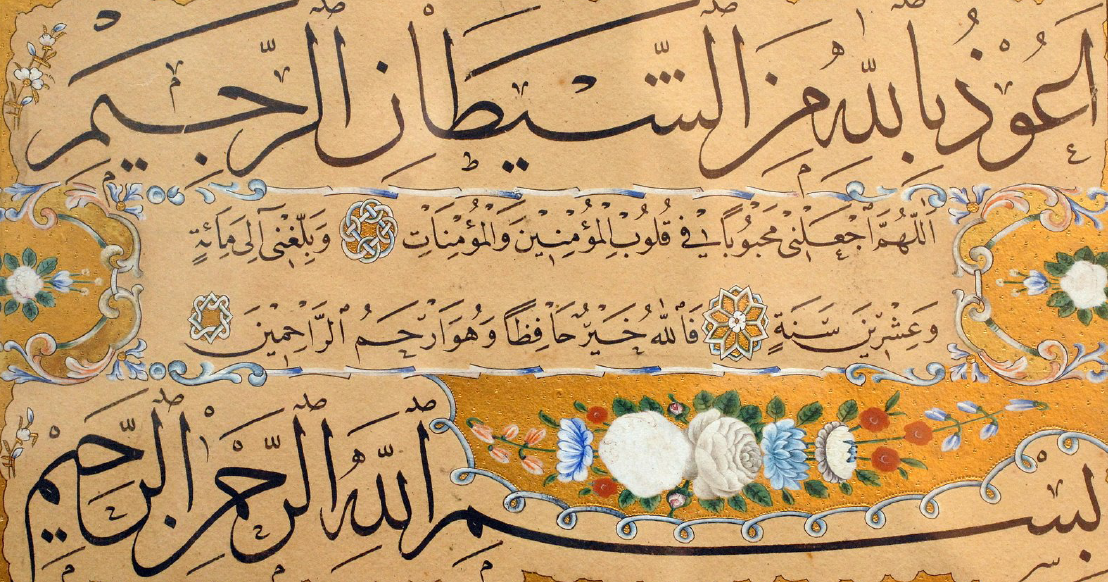 اَعُوْذُ بِاللّٰهِ مِنَ الشَّيْطَانِ الرَّجِيْمِ
اَللّٰهُمَّ اجْعَلْنِي مَحْبُوبًا فِي قُلُوبِ الْمُؤْمِنِينَ وَالْمُؤْمِنَاتِ وَبَلِّغْنِي اِلَى مِائَةٍ
وَعِشْرِينَ سَنَةٍ فَاللّٰهُ خَيْرٌ حَافِظًا وَهُوَ اَرْحَمُ الرَّاحِمِينَ
بِسْمِ اللّٰهِ الرَّحْمٰنِ الرَّحِيْمِ